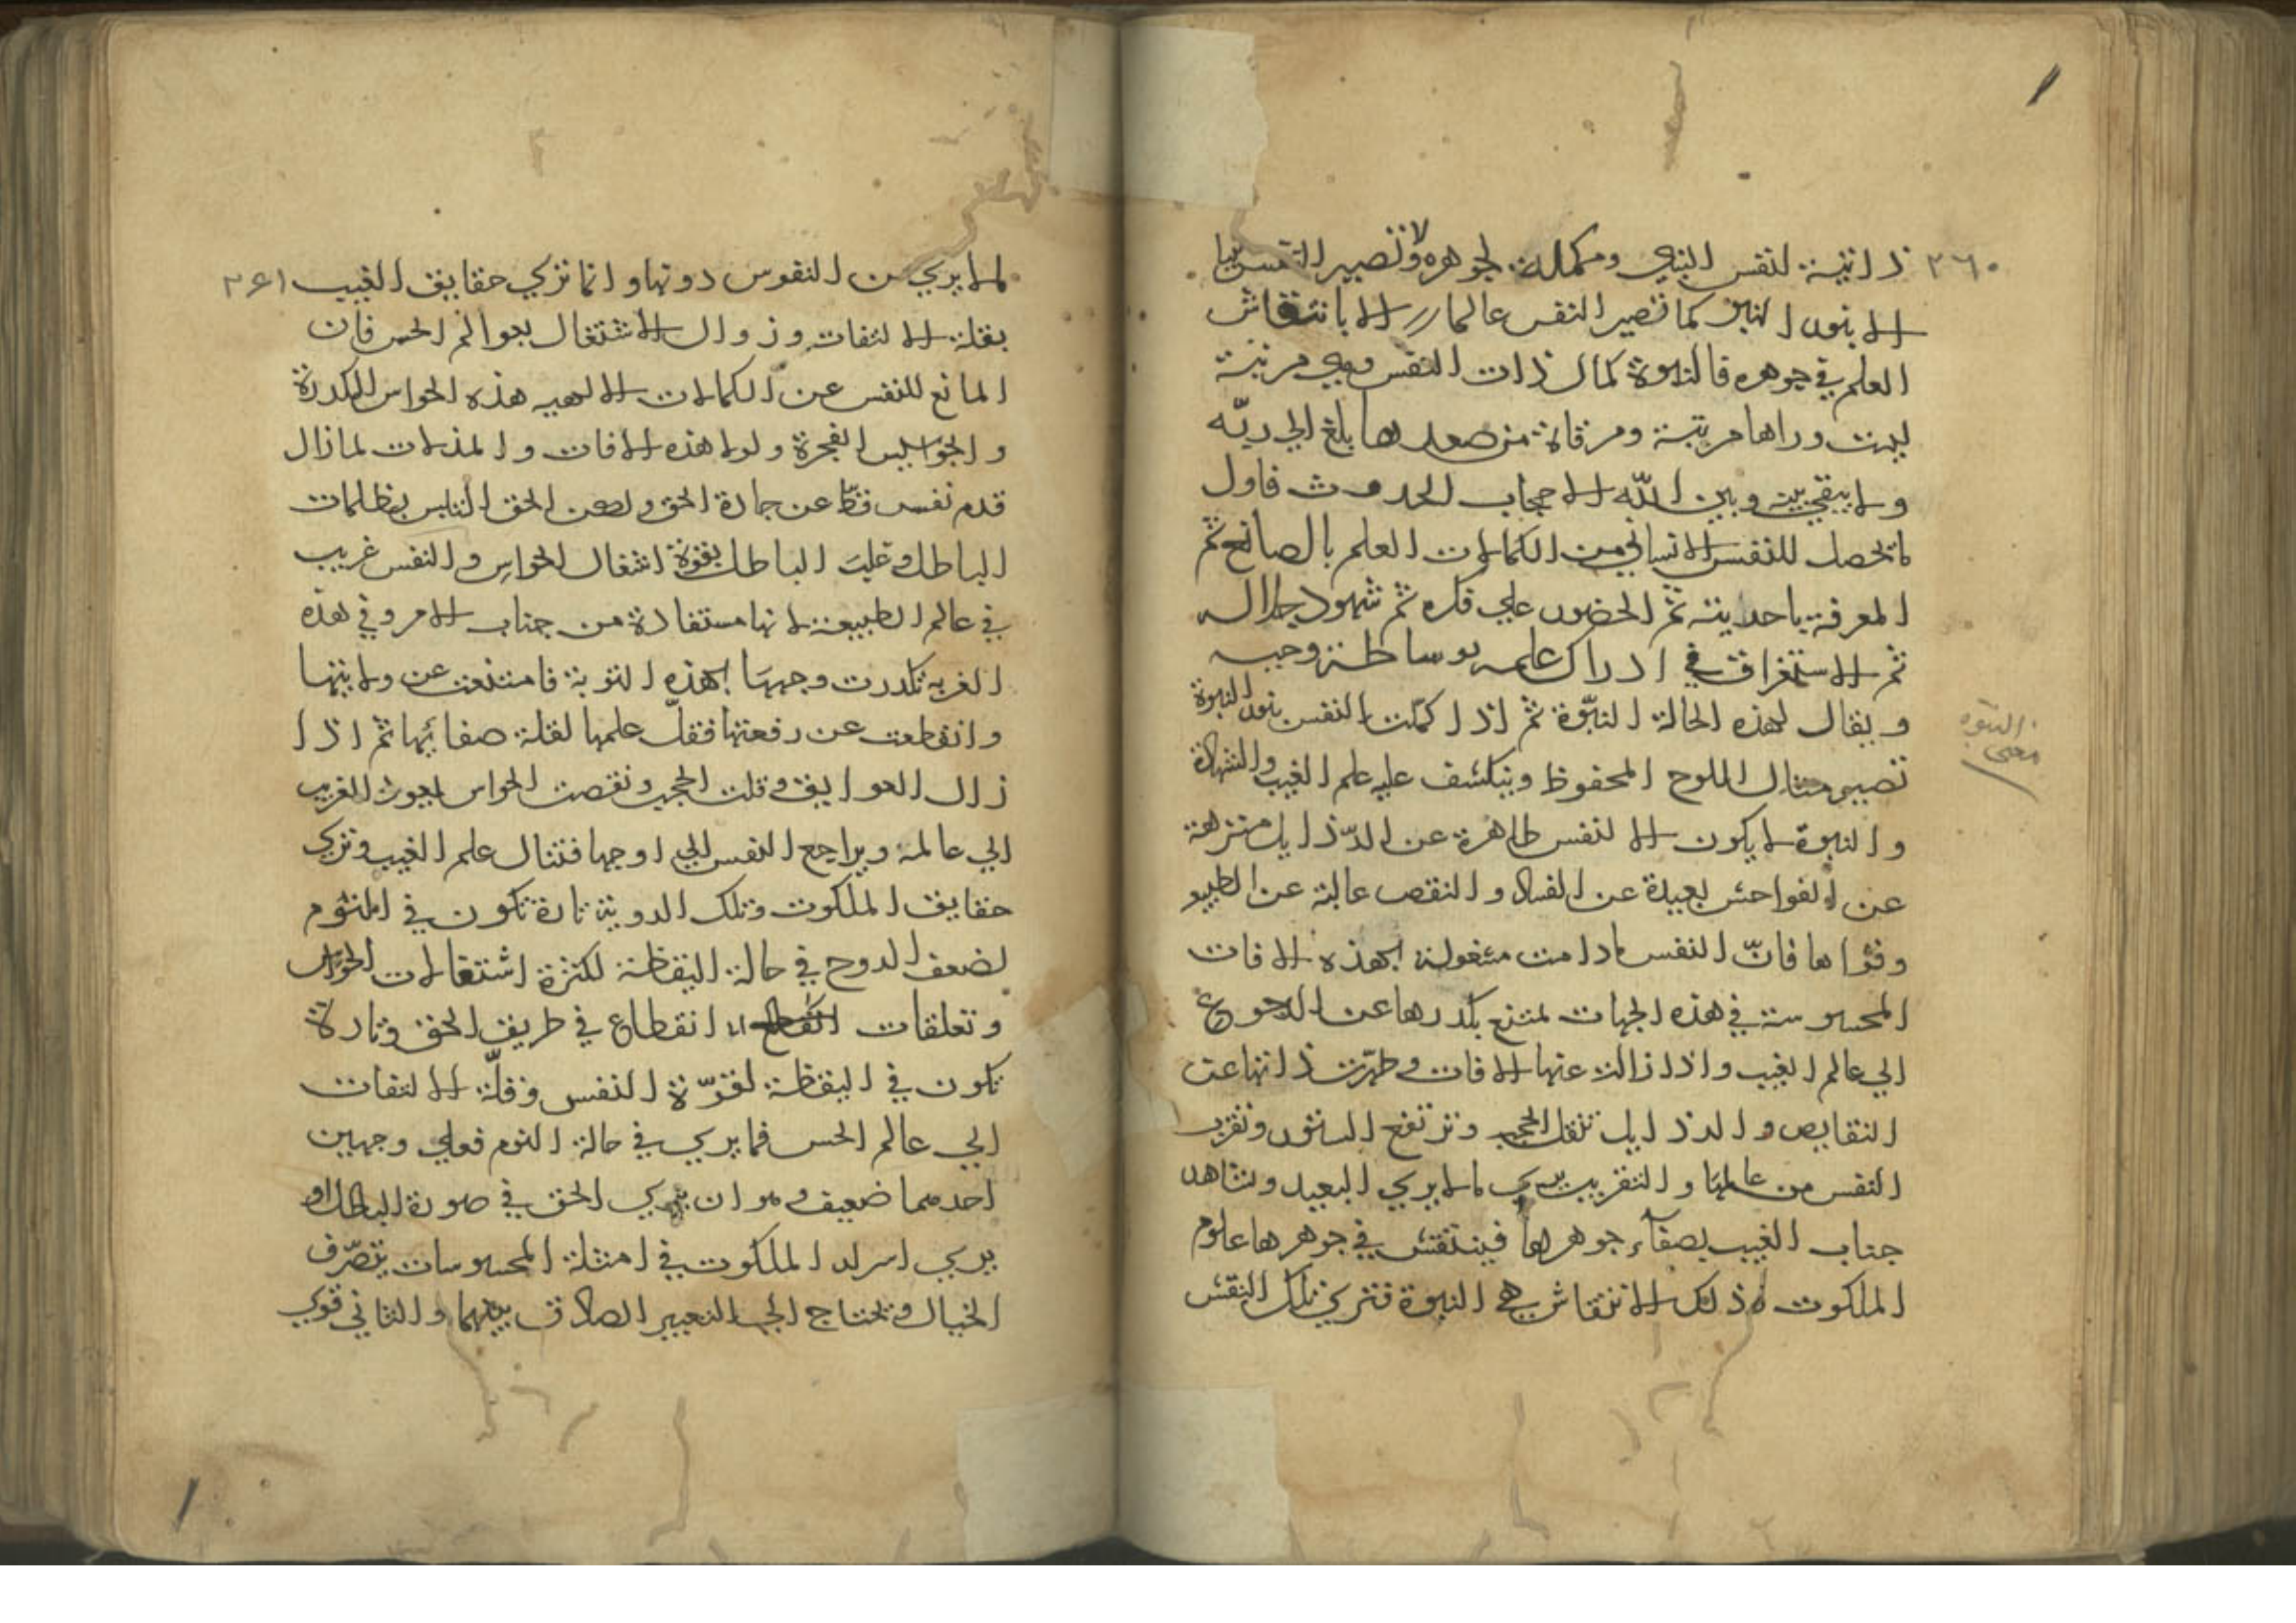 ٢٦٠
ذاتية لنفس النبي ومكملة لجوهره ولا تصير النفس نبيا
الا بنور النبوة كما تصير النفس عالما الا بانتقاش
العلم في جوهره فالنبوة كمال ذات النفس وهي مرتبة
ليست وراها مرتبة ومرقاة من صعدها بلغ الي ربّه
ولا يبقي بينه وبين اللّه الا حجاب الحدوث فاول
ما يحصل للنفس الانساني من الكمالات العلم بالصانع ثم
المعرفة باحديته ثم الحضور علي ذكره ثم شهود جلاله
ثم الاستغراق في ادراك علمه بوساطة وحيه
ويقال لهذه الحالة النبّوة ثم اذا كملت النفس بنور النبوة
تصير مثال اللوح المحفوظ وينكشف عليه علم الغيب والشهادة
والنبوة لا يكون الا لنفس طاهرة عن الرّذايل منتزهة
عن الفواحش بعيدة عن الفساد والنقص عالية عن الطبيع
وقواها فانّ النفس مادامت مشغولة بهذه الافات
المحسوسة في هذه الجهات لمتنع بكدرها عن الرجوع
الي عالم الغيب واذا زالت عنها الافات وطهرّت ذاتها عن
النقايص والرذايل تنقل الحجب وترتفع الستور وتقرب
النفس من عالمها والتقريب يري ما لا يري البعيد وتشاهد
جناب الغيب بصفآء جوهرها فينتقش في جوهرها علوم
الملكوت وذلك الانتقاش هي النبوة فتري تلك النفس
النبوة
معنى
٢٦١
لما لا يري من النفوس دونها وانما تزكي حقايق الغيب
بقلة الالتفات وزوال الاشتغال بعوالم الحس فان
المانع للنفس عن الكمالات الالهيه هذه الحواس المكدرة
والجواسيس الفجرة ولولا هذه الافات والمذلات لما زال
قدم نفس قط عن جادة الحق ولكن الحق التابس بظلمات
الباطل وغلبت الباطل بقوة اشغال الحواس والنفس غريب
في عالم الطبيعة لانها مستفادة من جناب الامر وفي هذه
الغربة تكدرت وجهها بهذه التوبة فامتنعت عن ولايتها
وانقطعت عن رفعتها فقلّ علمها لقلة صفائها ثم اذا
زال العوايق وقلت الحجب ونقصت الحواس يعود الغريب
الي عالمه ويراجع النفس الي اوجها فتنال علم الغيب وتزكي
حقايق الملكوت وتلك الروية تارة تكون في المنوم
لضعف الروح في حالة اليقظة لكثرة اشتغالات الحواس
وتعلقات انقطاع في طريق الحق وتارة
تكون في اليقظة لقوّة النفس وقلّة الالتفات
الي عالم الحس فما يري في حالة النوم فعلي وجهين
احدهما ضعيف وهو ان يري الحق في صورة الباطل او
يري اسرار الملكوت في امثلة المحسوسات بتصّرف
الخيال وتحتاج الي التعبير الصادق بينهما والثاني قوي